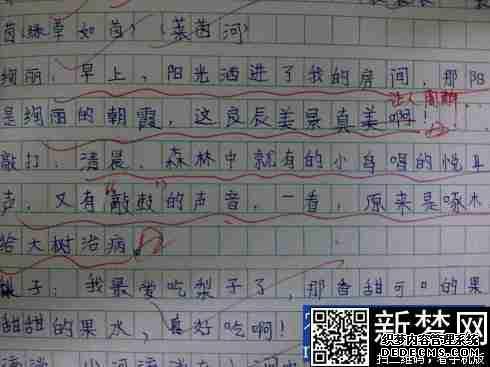 茵(绿草如茵)(莱茵河)
绚丽：早上，阳光洒进了我的房间，那阳
让人陶醉
是绚丽的朝霞，这良辰美景真美啊！
敲打：清晨，森林中就有的小鸟唱的悦耳
声，又有"敲鼓"的声音，一看，原来是啄木
给大树治病。
梨子：我最爱吃梨子了，那香甜可口的果
甜甜的果水，真好吃啊！
新梦网
扫二维码，看手机版